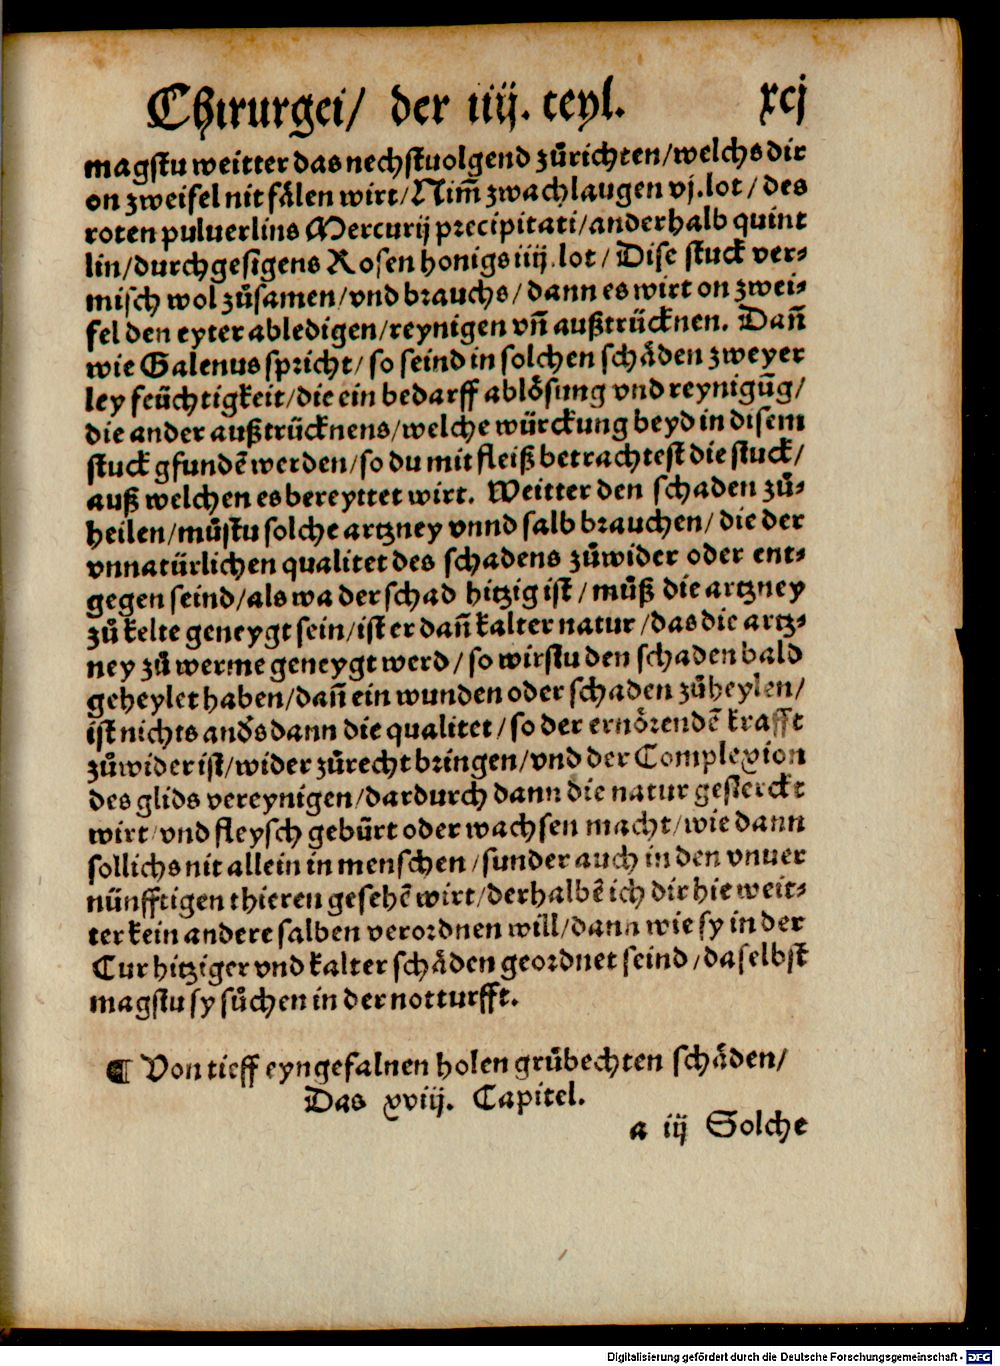 Chirurgei/ der iiij. teyl. xcj
magstu weitter das nechstuolgend zůrichten/welchs dir
on zweifel nit fälen wirt/Nim̄ zwachlaugen vj.lot/des
roten puluerlins Mercurij precipitati/anderhalb quint
lin/durchgesigens Rosen honigs iiij.lot/Dise stuck ver-
misch wol zůsamen/vnd brauchs/dann es wirt on zwei-
fel den eyter abledigen/reynigen vn̄ außtrücknen. Dan̄
wie Galenus spricht/so seind in solchen schäden zweyer
ley feüchtigkeit/die ein bedarff ablösung vnd reynigūg/
die ander außtrücknens/welche würckung beyd in disem
stuck gfundē werden/so du mit fleiß betrachtest die stuck/
auß welchen es bereyttet wirt. Weitter den schaden zů-
heilen/můstu solche artzney vnnd salb brauchen/die der
vnnatürlichen qualitet des schadens zůwider oder ent-
gegen seind/als wa der schad hitzig ist/můß die artzney
zů kelte geneygt sein/ist er dan̄ kalter natur/das die artz-
ney zů werme geneygt werd/so wirstu den schaden bald
geheylet haben/dan̄ ein wunden oder schaden zůheylen/
ist nichts anďs dann die qualitet/so der ernörendē krafft
zůwider ist/wider zůrecht bringen/vnd der Complexion
des glids vereynigen/dardurch dann die natur gesterckt
wirt/vnd fleysch gebürt oder wachsen macht/wie dann
sollichs nit allein in menschen/sunder auch in den vnuer
nünfftigen thieren gesehē wirt/derhalbē ich dir hie weit-
ter kein andere salben verordnen will/dann wie sy in der
Cur hitziger vnd kalter schäden geordnet seind/daselbst
magstu sy sůchen in der notturfft.
¶ Von tieff eyngefalnen holen grůbechten schäden/
Das xviij. Capitel.
a iij Solche
Digitalisierung gefördert durch die Deutsche Forschungsgemeinschaft - DFG